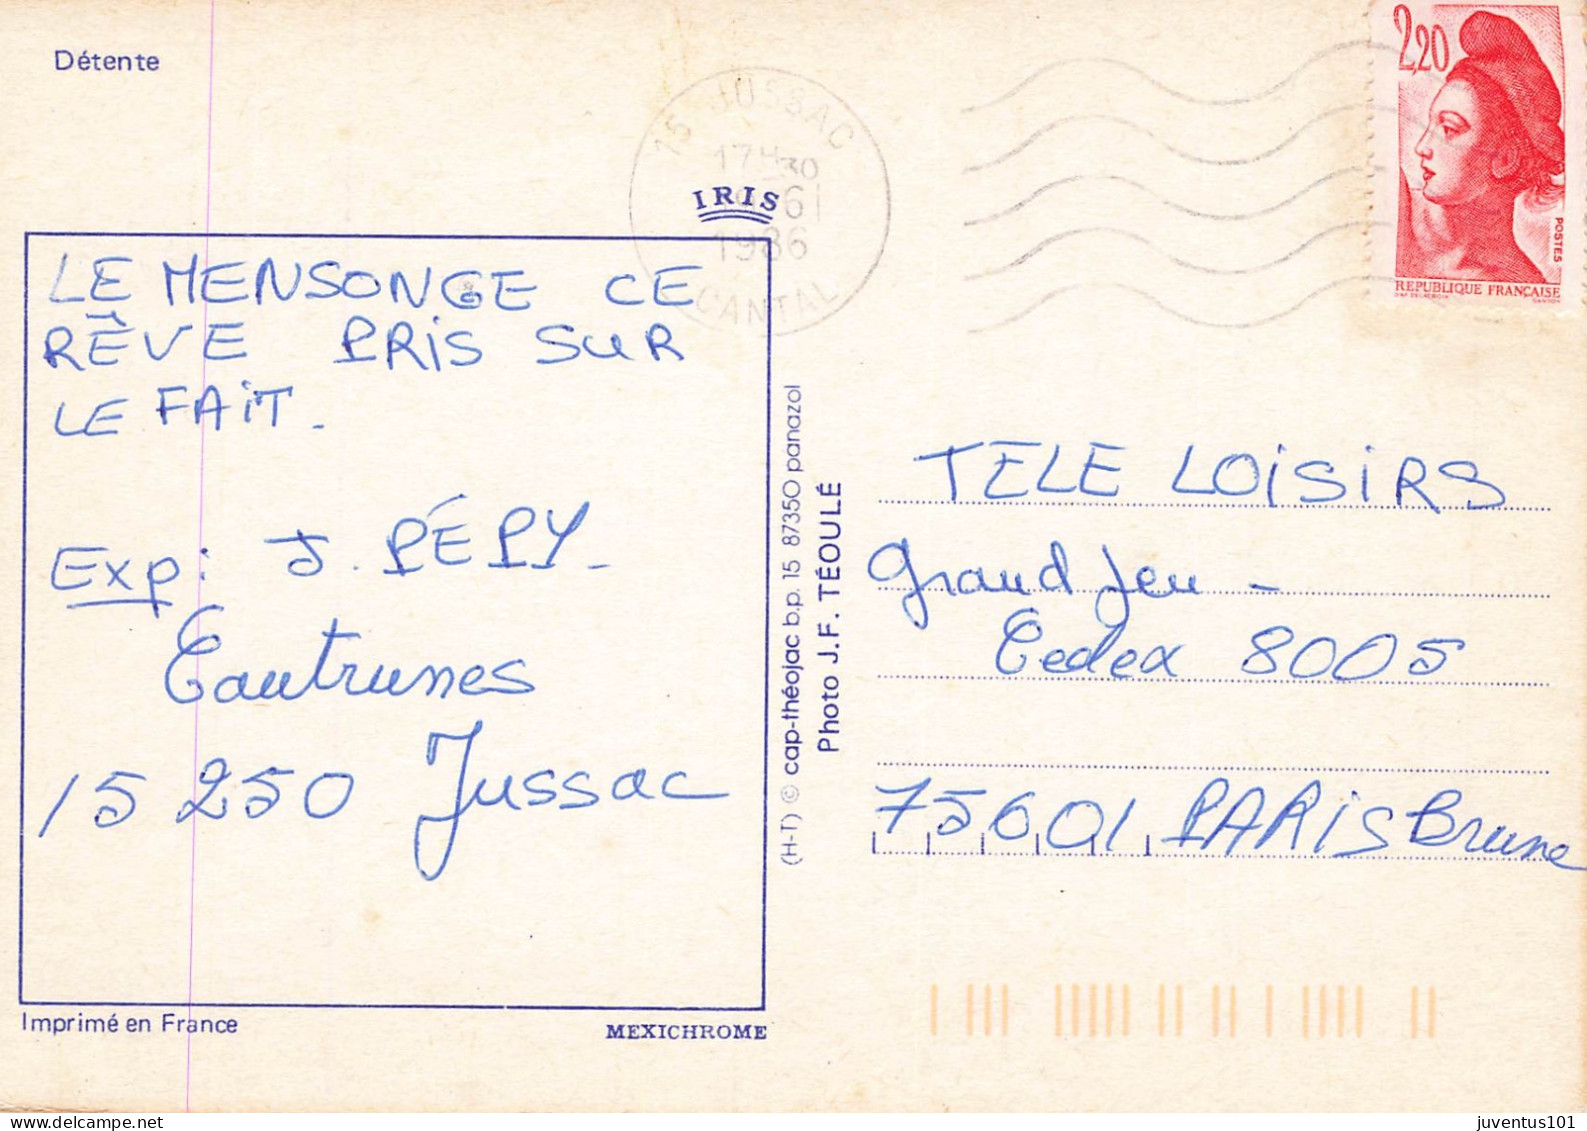 Détente
15 JUSSAC
17H30
1986
CANTAL
2,20
POSTES
REPUBLIQUE FRANÇAISE
IRIS
LE MENSONGE CE
RÊVE PRIS SUR
LE FAIT.
Exp: J. PÉPY-
Cautrunes
15 250 Jussac
(H-T) © cap-théojac b.p. 15 87350 panazol
Photo J.F. TÉOULÉ
TELE LOISIRS
Grand Jeu -
Cedex 8005
75601 PARIS Brune
Imprimé en France
MEXICHROME
juventus101